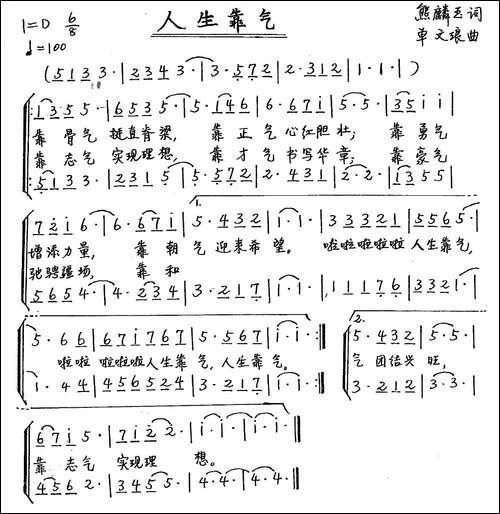 人生靠气
1=D 6/8
♩=100
熊麟玉词
单文琅曲
(5 1 3 3·|2 3 4 3·|3·5 7 2|2·3 1 2|1·1·|)
1 3 5 5|6 5 3 5·|5·1 4 6|6·6 7 1|5·5·|3 5 1 1|
靠骨气 挺直脊梁, 靠正气心红胆壮; 靠勇气
靠志气 实现理想, 靠才气书写华章; 靠豪气
5 1 3 3·|2 3 1 5|5·5 7 2|2·4 3 1|2·2·|1 3 5 5|
1.
7 2 1 6·|6·6 7 1|5·4 3 2|1·1·|3 3 3 3 2 1|5 5 6 5·|
增添力量, 靠朝气迎来希望。 啦啦啦啦啦人生靠气,
驰骋疆场, 靠和
5 6 5 4·|4·2 3 4|3·2 1 7|1·1·|1 1 1 1 7 6|3 3 2 1·|
5·6 6|6 7 1 7 6 7|5·5 6 7|1·1·:‖
啦啦 啦啦啦人生靠气,人生靠气。
1·4 4|4 5 6 5 2 4|3·2 1 7|1·1·:‖
2.
5·4 3 2|5·5·|
气团结兴旺,
3·2 1 2|3·3·|
6 7 1 5·|7 1 2 2·|1·1·|1·1·‖
靠志气 实现理 想。
4 5 6 2·|3 4 5 5·|4·4·|4·4·‖